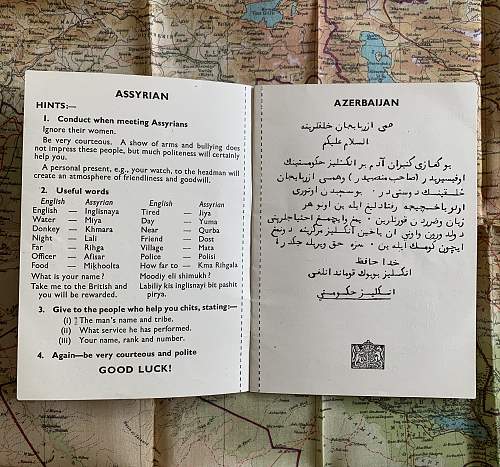 ASSYRIAN
HINTS:—
1. Conduct when meeting Assyrians
Ignore their women.
Be very courteous. A show of arms and bullying does
not impress these people, but much politeness will certainly
help you.
A personal present, e.g., your watch, to the headman will
create an atmosphere of friendliness and goodwill.
2. Useful words
English Assyrian English Assyrian
English — Inglisnaya Tired — Jiya
Water — Miya Day — Yuma
Donkey — Khmara Near — Qurba
Night — Lali Friend — Dost
Far — Rihga Village — Mata
Officer — Afisar Police — Polisi
Food — Mikhoolta How far to — Kma Rihgala
What is your name? — Moodiy eli shimukh?
Take me to the British and — Labiliy kis inglisnayi bit pashit
you will be rewarded. pirya.
3. Give to the people who help you chits, stating:—
(i) The man's name and tribe.
(ii) What service he has performed.
(iii) Your name, rank and number.
4. Again—be very courteous and polite
GOOD LUCK!
AZERBAIJAN
همی ازربایجان خلقلرینه
السلام علیکم
بو کاغازی کتیران آدم بر انگلیز حکومتینک
اوفیسریدر (صاحب منصبیدر) وهمی ازربایجان
خلقینک دوستی در . بو سببدن اوتوری
رفتارلیغ ایله ین هر
زیان وضرردن قورتارین . احتیاجلرینی
یاخین انگلیز مرکزینه دونمغ
ایچون کومک ایله ین . سزه حق
خدا حافظ
انگلیز بویوک قوماندانلغی
انگلیز حکومتی